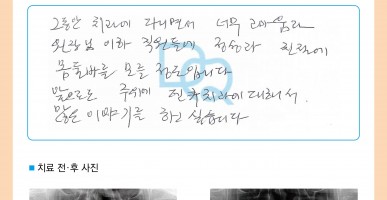 그동안 치과에 다니면서 너무 고마움과
원장님 이하 직원들에 정성과 친절에
몸둘바를 모를 정도입니다
앞으로도 주위에 치과에 대해서
많은 이야기를 하고 싶습니다
■ 치료 전·후 사진